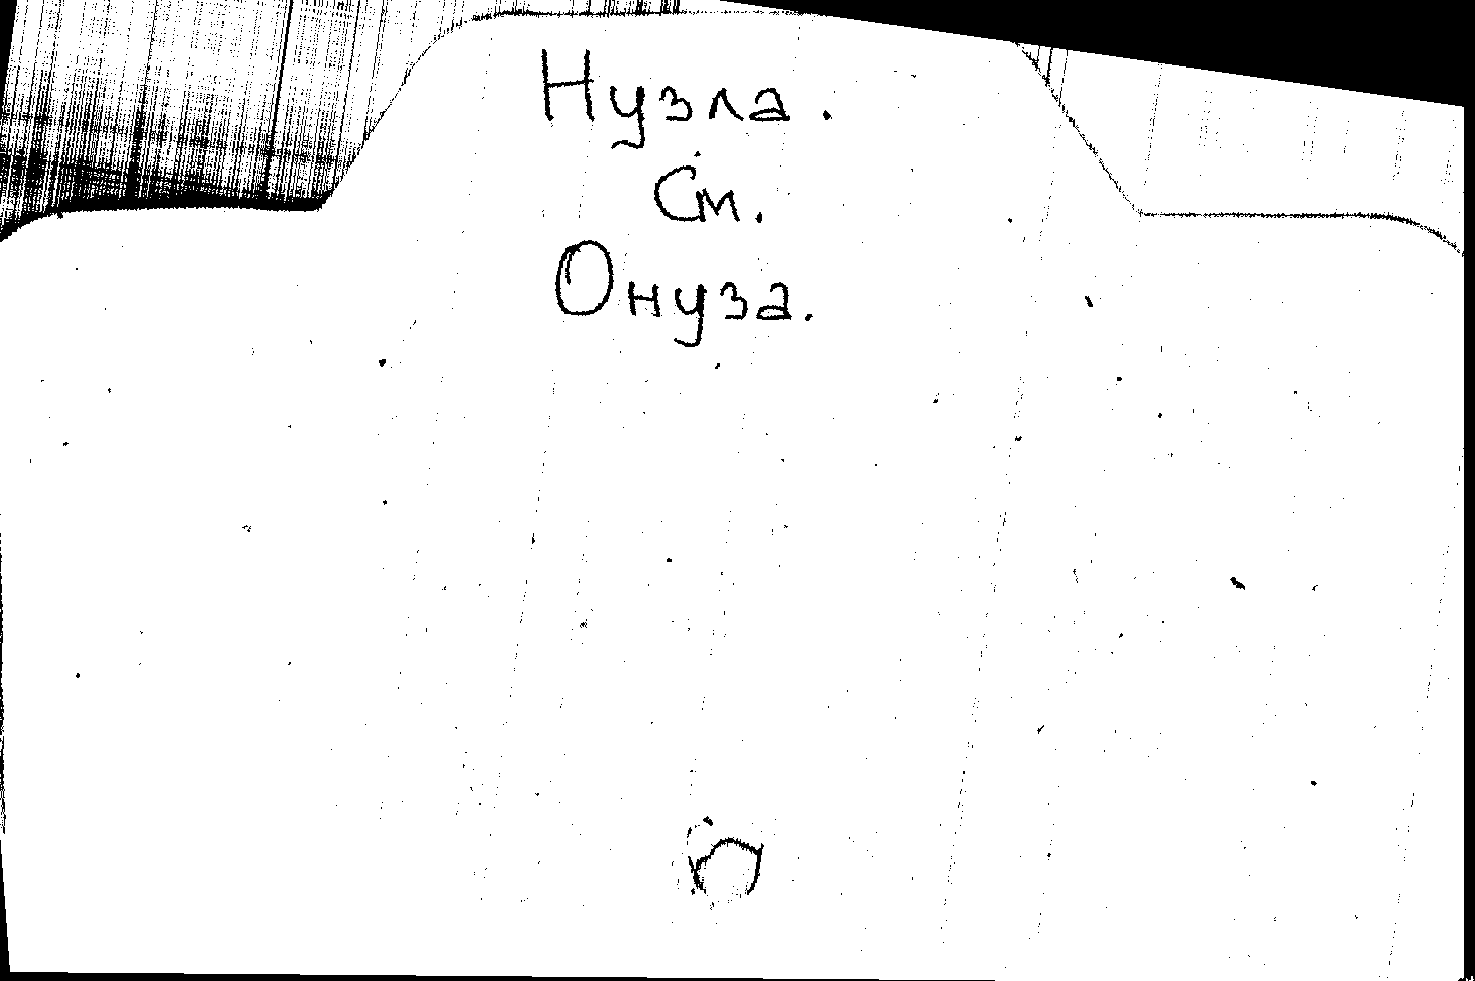 Нузла.
См.
Онуза.